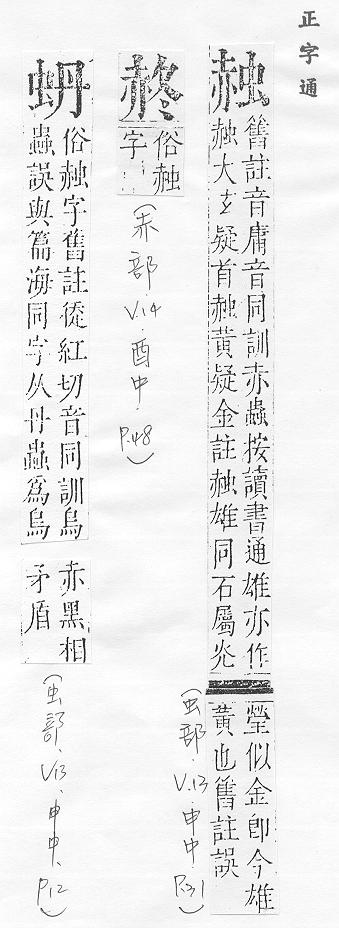 正字通
赨
舊註音庸音同訓赤蟲按讀書通雄亦作
赨大玄疑首赨黃疑金註赨雄同石屬灮
瑩似金卽今雄
黃也舊註誤
(虫部.V.13.申中.P.31)
俗赨
字
(赤部.V.14.酉中.P.48)
俗赨字舊註從紅切音同訓烏
蟲誤與篇海同字从丹蟲爲烏
赤黑相
矛盾
(虫部.V.13.申中.P.12)